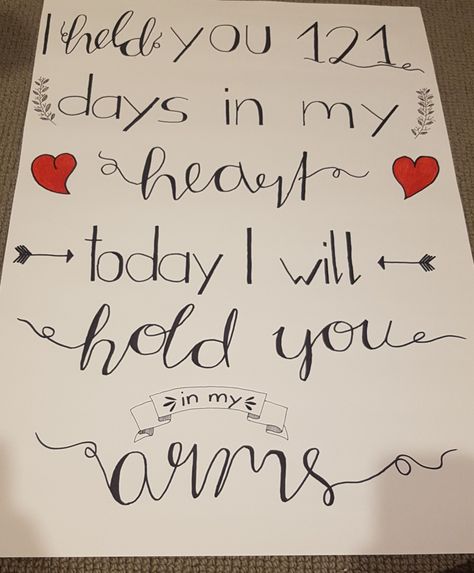 I held you 121
days in my
heart
today I will
hold you
in my
arms